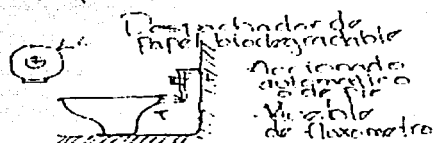 Despachador de
papel biodegradable
Accionado
automático
o de pie
Mueble
de fluxometro